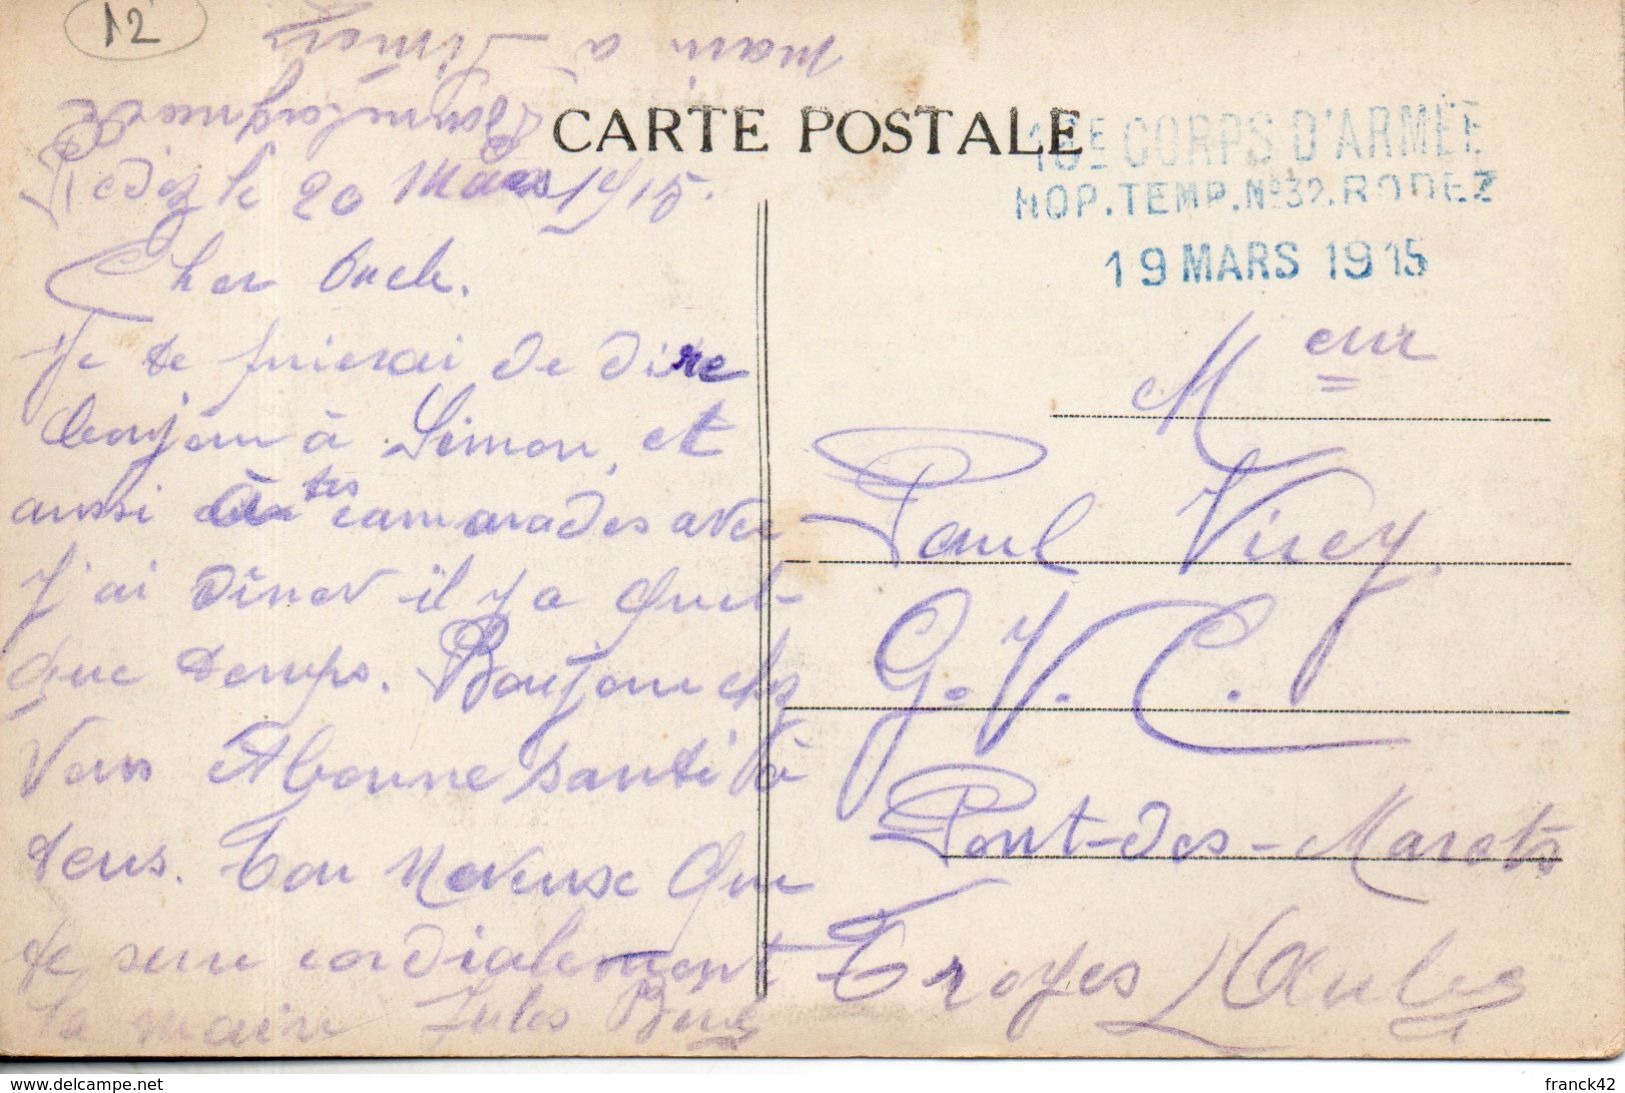 12
main à Simon
CARTE POSTALE
16E CORPS D'ARMÉE
HOP. TEMP. No 32. RODEZ
19 MARS 1915
Rodez le 20 Mars 1915.
Cher Oncle.
Je te prierai de dire
bonjour à Simon, et
aussi à tes camarades avec
J'ai dîner il y a Quel-
que temps. Bonjour chez
Vous et Abonne santé à
tous. Ton Neveux Que
te serre cordialement
la main Jules
Meur
Paul Virey
G. V. C.
Pont-des-Marots
Troyes Aube
delcampe.net
franck42